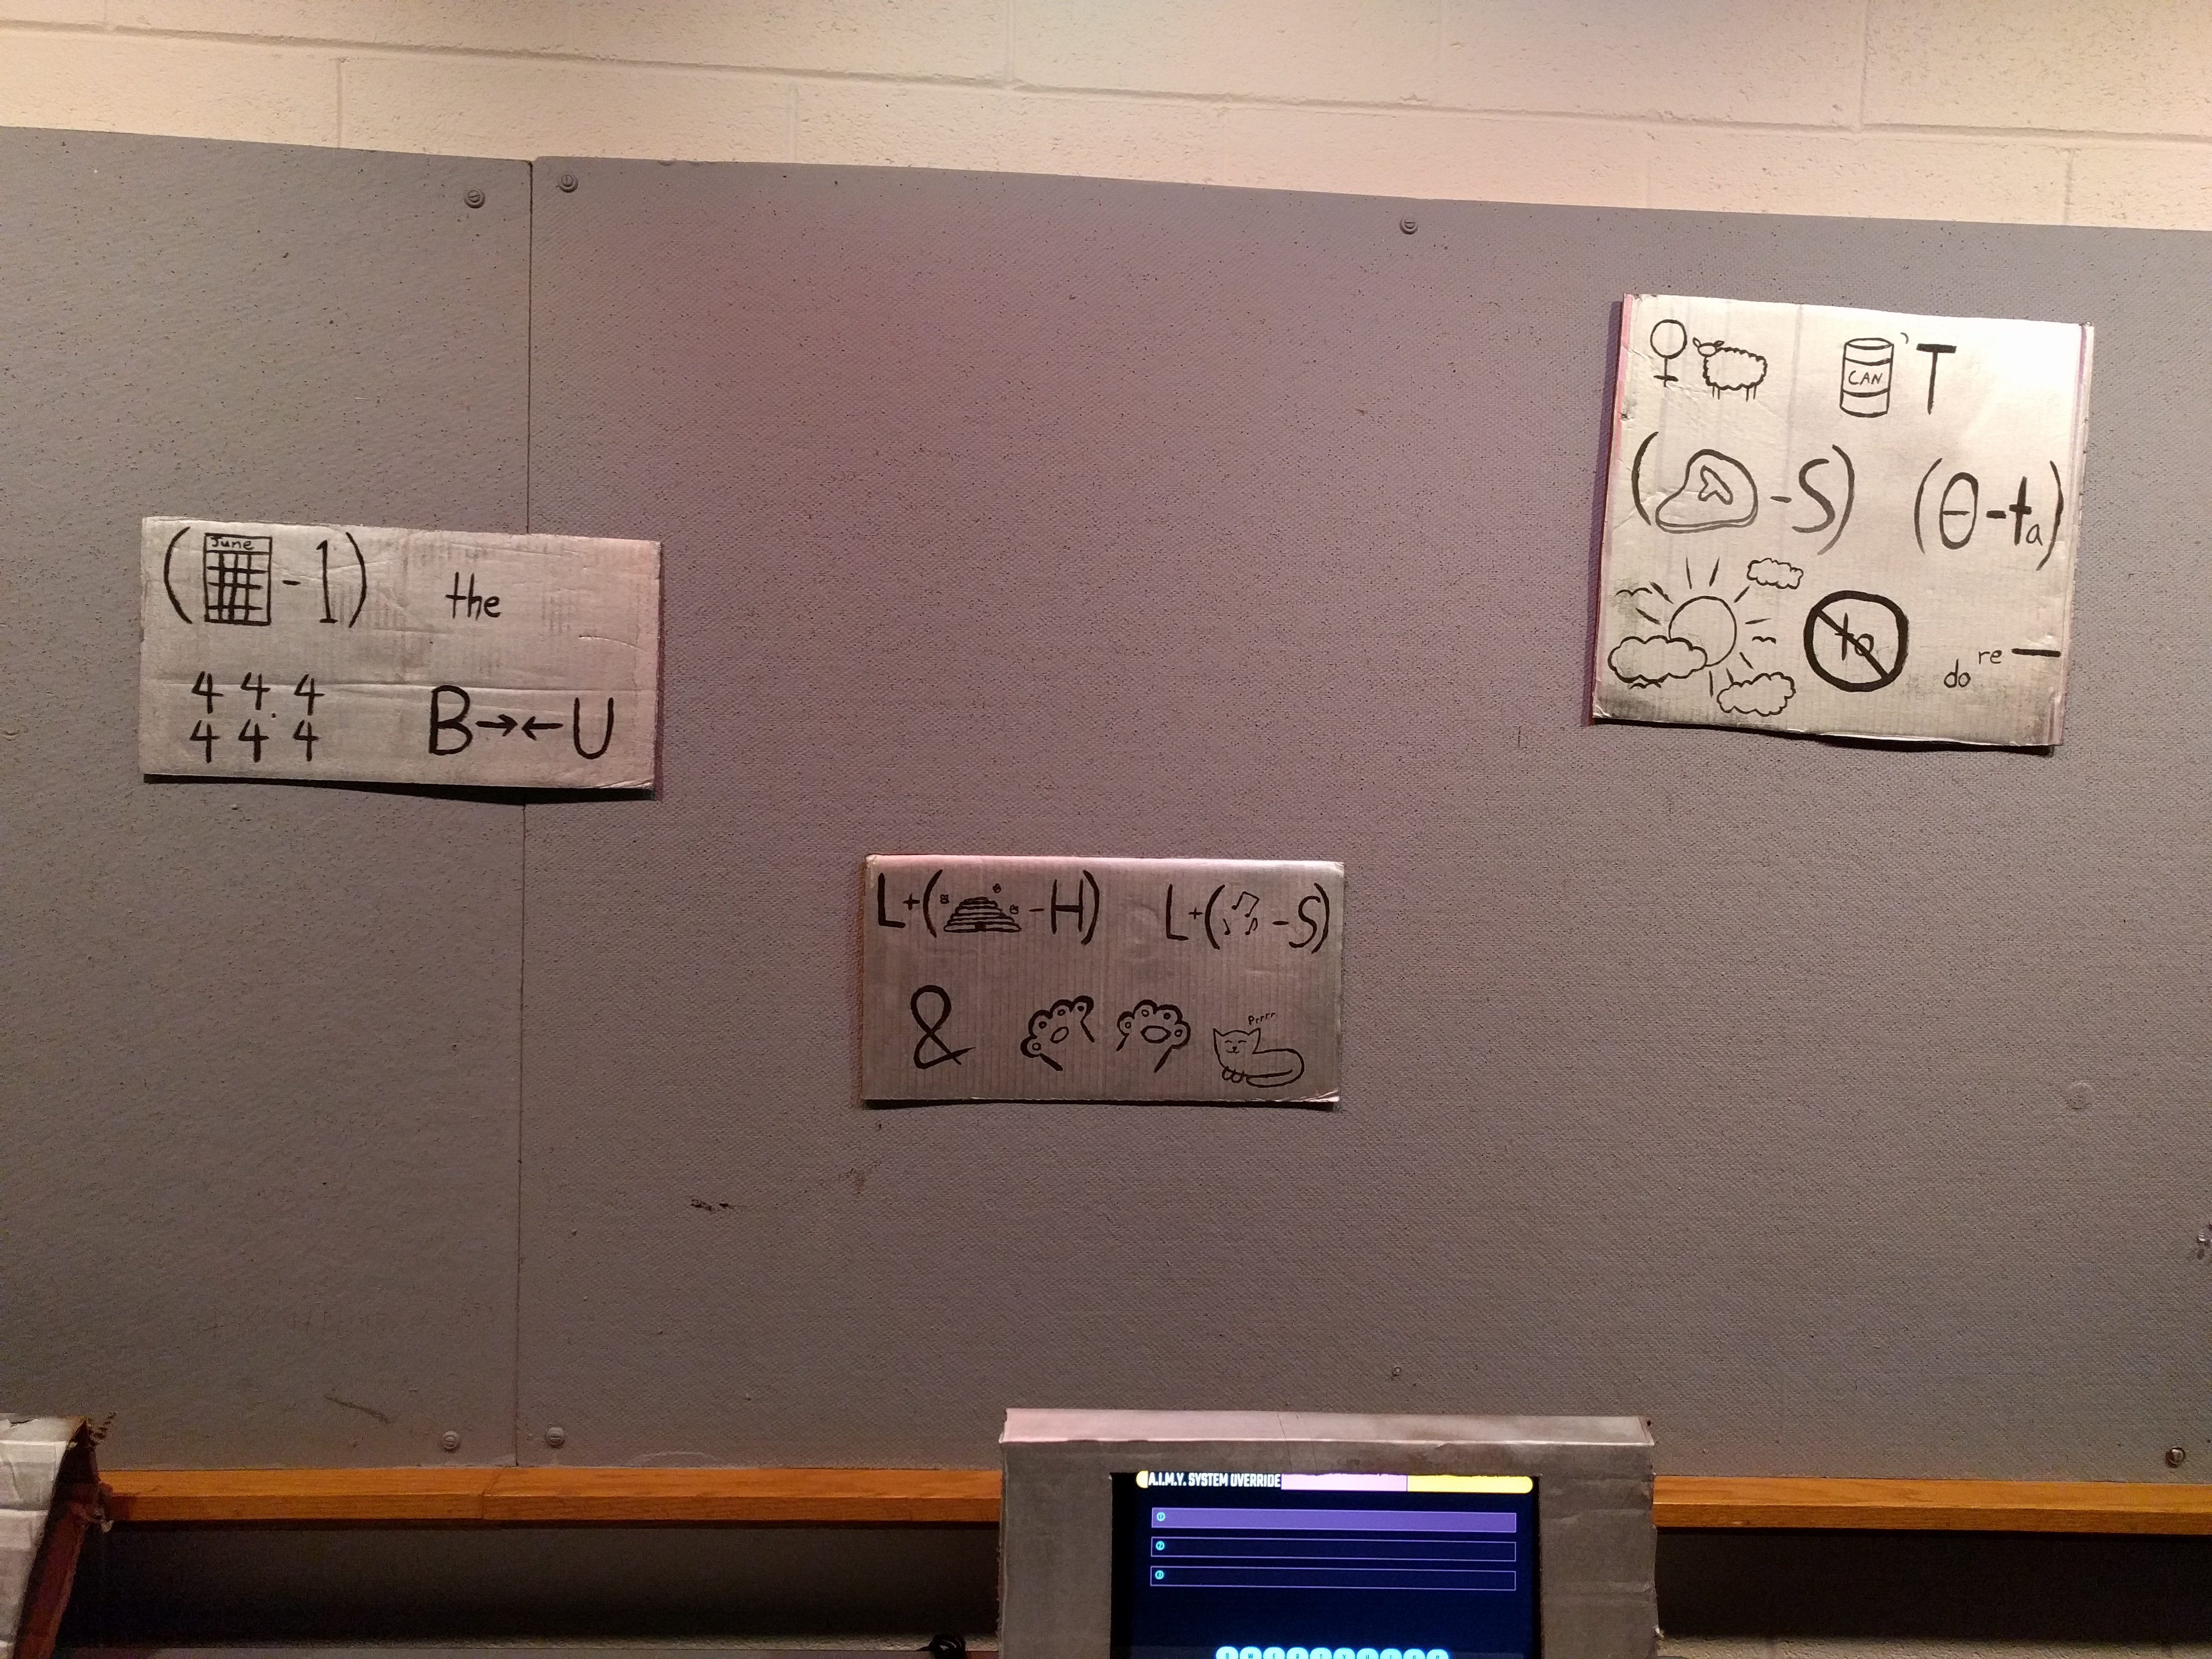 (June - 1) the
4 4 4
4 4 4 B→←U
L+( -H) L+( -S)
& Prrrr
CAN 'T
( -S) (θ-ta)
to do re —
A.I.M.Y. SYSTEM OVERRIDE
1
2
3